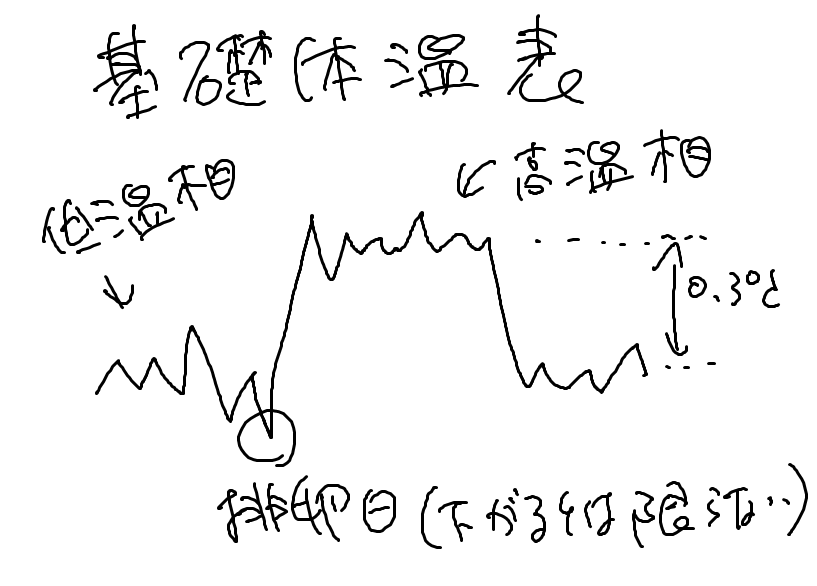 基礎体温表
低温相
高温相
0.3℃
排卵日(下がるとは限らない)